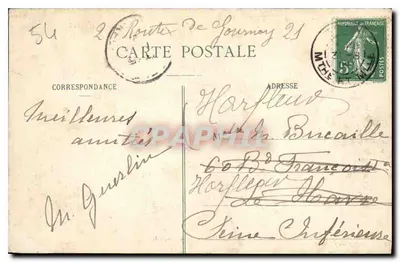 54 2 Route de Gournay 21
CARTE POSTALE
REPUBLIQUE FRANCAISE
5c
POSTES
CORRESPONDANCE
ADRESSE
Harfleur
Meilleures
amitiés
CPArama
M. Guerlin
La Bucaille
60 Bd François 1er
Harfleur
Le Havre
Seine Inférieure